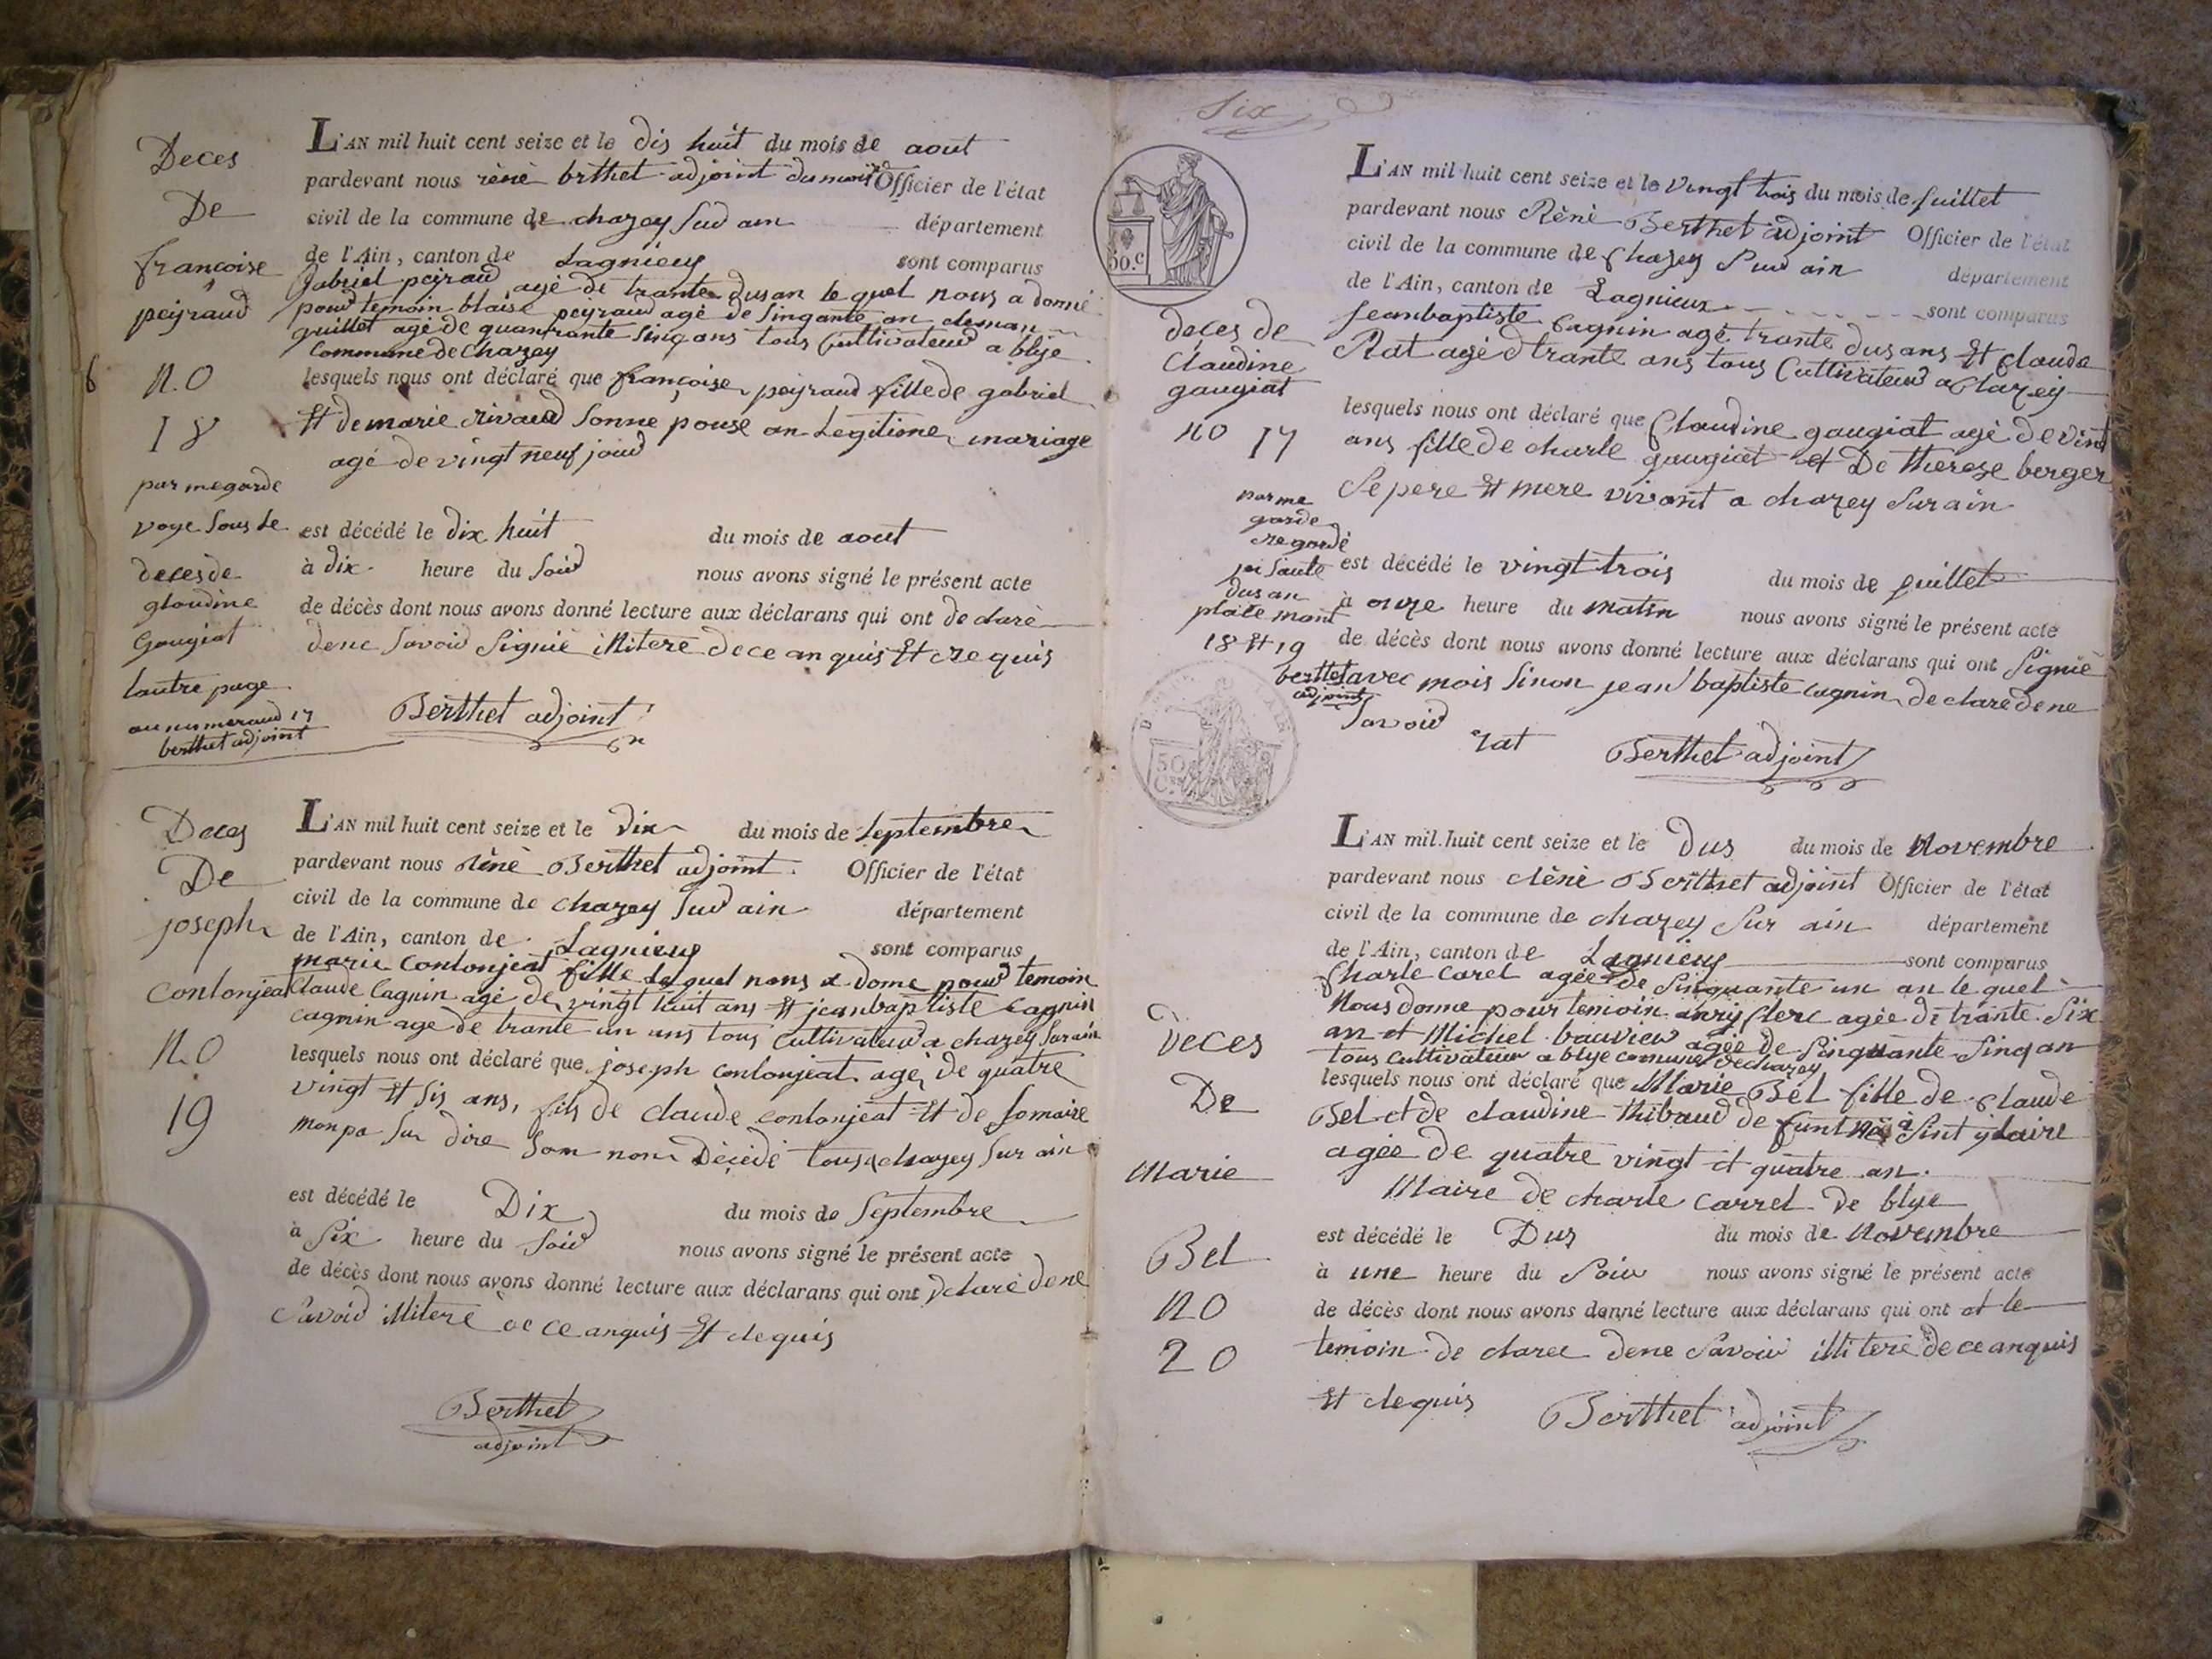 Deces
De
françoise
peyraud
N.O
18
par megarde
voye sous le
deces de
glaudine
Gaugiat
lautre page
au numeraud 17
berthet adjoint
6
L'AN mil huit cent seize et le dis huit du mois de aout
pardevant nous rènè brthet adjoint du maire Officier de l'état
civil de la commune de chazey sud ain département
de l'Ain, canton de Lagnieus sont comparus
Gabriel peyraud agé de trante dus an le quel nous a donné
poud temoin blaise peyraud agé de singante an cleman
guillet agé de quanrante sinq ans tous Cultivateud a blije
Commune de Chazey
lesquels nous ont déclaré que françoise peyraud fille de gabriel
Et de marie rivaud sonne pouse an Legitime mariage
agé de vingt neuf joud
est décédé le dix huit du mois de aout
à dix heure du soid nous avons signé le présent acte
de décès dont nous avons donné lecture aux déclarans qui ont de claré
dene savoid signié illitere de ce anquis Et requis
Berthet adjoint
Deces
De
joseph
Conlonjeat
N.O
19
L'AN mil huit cent seize et le dix du mois de septembre
pardevant nous rènè Berthet adjoint Officier de l'état
civil de la commune de chazey sud ain département
de l'Ain, canton de Lagnieus sont comparus
marie Conlonjeat fille le quel nous a done poud temoin
Claude Cagnin agé de vingt huit ans Et jeanbaptiste Cagnin
cagnin age de trante un ans tous Cultivateud a chazey sur ain
lesquels nous ont déclaré que joseph conlonjeat agé de quatre
vingt Et sis ans, fils de claude conlonjeat Et de somaire
mon pa su dire son nom Décédé tous a chazey sur ain
est décédé le Dix du mois de septembre
à six heure du soid nous avons signé le présent acte
de décès dont nous avons donné lecture aux déclarans qui ont declaré dene
savoid illiteré de ce anquis Et requis
Berthet
adjoint
Six
50.c
deces de
Claudine
gaugiat
no 17
par me
garde
regardé
jai sauté
dus an
plate mont
18 Et 19
berthet
adjoint
50
Ces
L'AN mil huit cent seize et le vingt trois du mois de juillet
pardevant nous Rènè Berthet adjoint Officier de l'état
civil de la commune de Chazey Sud ain département
de l'Ain, canton de Lagnieux sont comparus
Jeanbaptiste Cagnin agé trante dus ans Et Claude
Rat agé d trante ans tous Cultivateud a Chazey
lesquels nous ont déclaré que Claudine gaugiat agé de vint
ans fille de charle gaugiat et De therese berger
se pere Et mere vivant a chazey sur ain
est décédé le vingt trois du mois de juillet
à onze heure du matin nous avons signé le présent acte
de décès dont nous avons donné lecture aux déclarans qui ont signié
avec mois sinon jean baptiste cagnin declare dene
savoid
rat Berthet adjoint
Deces
De
Marie
Bel
NO
20
L'AN mil huit cent seize et le Dus du mois de Novembre
pardevant nous rènè Berthet adjoint Officier de l'état
civil de la commune de chazey sur ain département
de l'Ain, canton de Lagnieus sont comparus
Charle Carel agée de sinquante un an le quel
Nous donne pour temoin anrij Clerc agée de trante six
an et Michel bauvier agée de sinquante sinq an
tous Cultivateur a blye comune de chazey
lesquels nous ont déclaré que Marie Bel fille de Claude
Bel et de claudine thibaud de funt Né à Sint ylaire
agée de quatre vingt et quatre an.
Maire de charle carrel de blye
est décédé le Dus du mois de Novembre
à une heure du soir nous avons signé le présent acte
de décès dont nous avons donné lecture aux déclarans qui ont et le
temoin de clarec dene savoir illi teré de ce anquis
Et requis Berthet adjoint